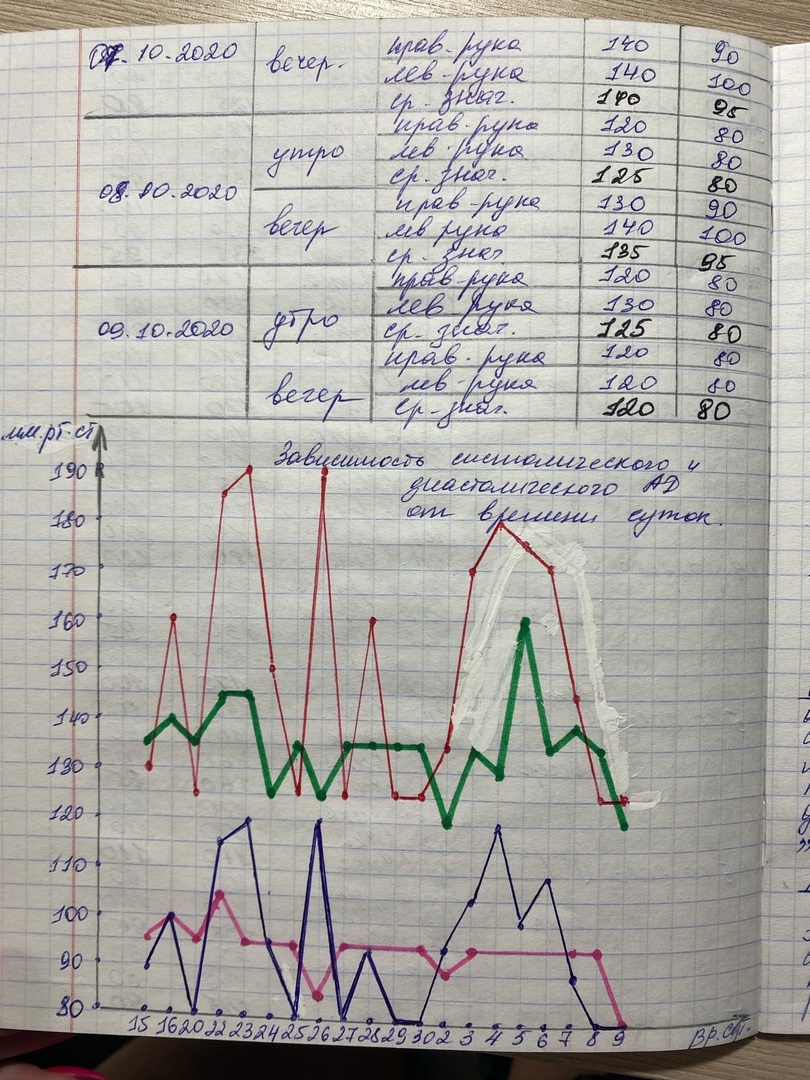 07.10.2020 вечер. прав. рука 140 90
лев. рука 140 100
ср. знач. 140 95
08.10.2020 утро прав. рука 120 80
лев. рука 130 80
ср. знач. 125 80
вечер прав. рука 130 90
лев рука 140 100
ср. знач. 135 95
09.10.2020 утро прав. рука 120 80
лев рука 130 80
ср. знач. 125 80
вечер прав. рука 120 80
лев. рука 120 80
ср. знач. 120 80
мм.рт.ст
Зависимость систолического и
диастолического АД
от времени суток.
190
180
170
160
150
140
130
120
110
100
90
80
15 16 20 22 23 24 25 26 27 28 29 30 2 3 4 5 6 7 8 9 вр. сут.